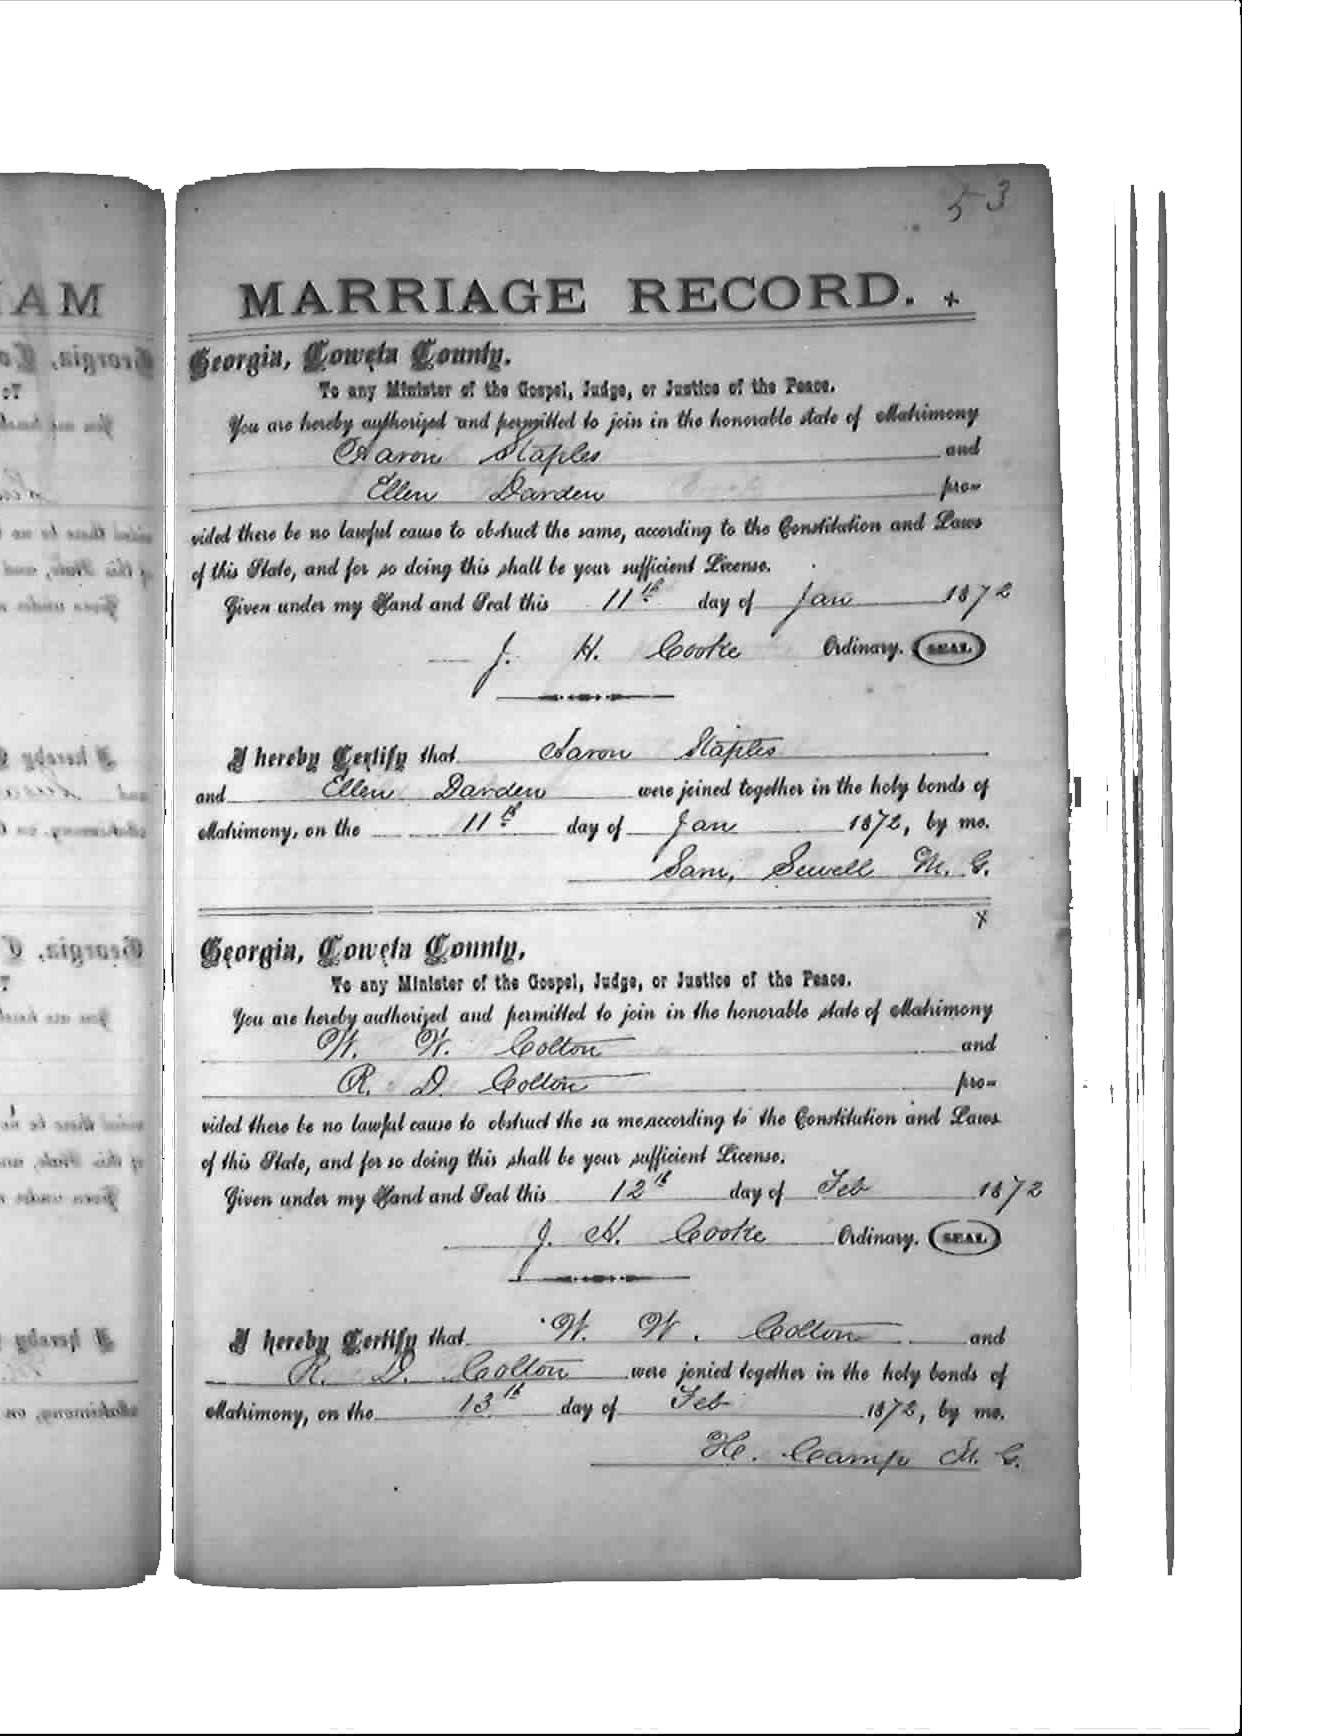 53
MARRIAGE RECORD. +
Georgia, Coweta County.
To any Minister of the Gospel, Judge, or Justice of the Peace.
You are hereby authorized and permitted to join in the honorable state of Matrimony
Aaron Staples and
Ellen Darden pro-
vided there be no lawful cause to obstruct the same, according to the Constitution and Laws
of this State, and for so doing this shall be your sufficient License.
Given under my Hand and Seal this 11th day of Jan 1872
J. H. Cooke Ordinary. SEAL.
I hereby Certify that Aaron Staples
and Ellen Darden were joined together in the holy bonds of
Matrimony, on the 11th day of Jan 1872, by me.
Sam, Sewell M. G.
X
Georgia, Coweta County,
To any Minister of the Gospel, Judge, or Justice of the Peace.
You are hereby authorized and permitted to join in the honorable state of Matrimony
W. W. Colton and
R. D. Colton pro-
vided there be no lawful cause to obstruct the sa me,according to the Constitution and Laws
of this State, and for so doing this shall be your sufficient License.
Given under my Hand and Seal this 12th day of Feb 1872
J. H. Cooke Ordinary. SEAL.
I hereby Certify that W. W. Colton and
R. D. Colton were jonied together in the holy bonds of
Matrimony, on the 13th day of Feb 1872, by me.
H. Camp M. G.